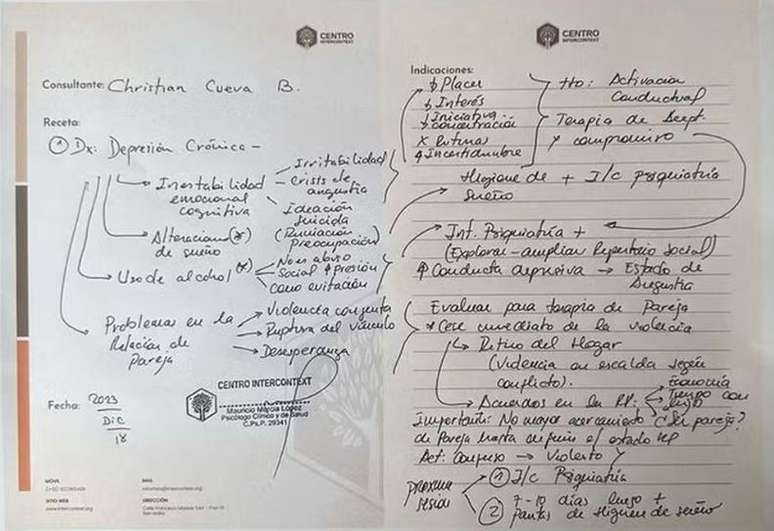 CENTRO
INTERCONTEXT
Consultante: Christian Cueva B.
Receta:
① Dx: Depresión Crónica -
Inestabilidad
emocional
cognitiva
Irritabilidad
Crisis de
angustia
Ideación
suicida
(Rumiación
Preocupación)
Alteraciones (*)
de sueño
Uso de alcohol (*)
No es abuso
Social ↑ presión
como evitación
Problemas en la
Relación de
Pareja
Violencia conjunta
Ruptura del vínculo
Desesperanza
Fecha: 2023
Dic
18
CENTRO INTERCONTEXT
Mauricio Murcia López
Psicólogo Clínico y de Salud
C.Ps.P. 29341
MÓVIL
MAIL
SITIO WEB
www.intercontext.org
DIRECCIÓN
CENTRO
INTERCONTEXT
Indicaciones:
↓ Placer
↓ Interés
↓ Iniciativa
↓ concentración
x Rutinas
↑ Incertidumbre
tto: Activación
Conductual
Terapia de Acept.
y compromiso
Higiene de + I/C Psiquiatría
Sueño
Int. Psiquiatría +
(Explorar - ampliar Repertorio Social)
↑ Conducta depresiva → Estado de
Angustia
Evaluar para terapia de Pareja
* Cese inmediato de la violencia
Retiro del Hogar
(Violencia en escalda según
conflicto).
Acuerdos en la
Economía
Tiempo con
Importante: No mayor acercamiento ¿Ser pareja?
de Pareja hasta el estado
Act: Confuso → Violento
próxima
sesión
① I/C Psiquiatría
② 7-10 días luego +
pautas de Higiene de sueño